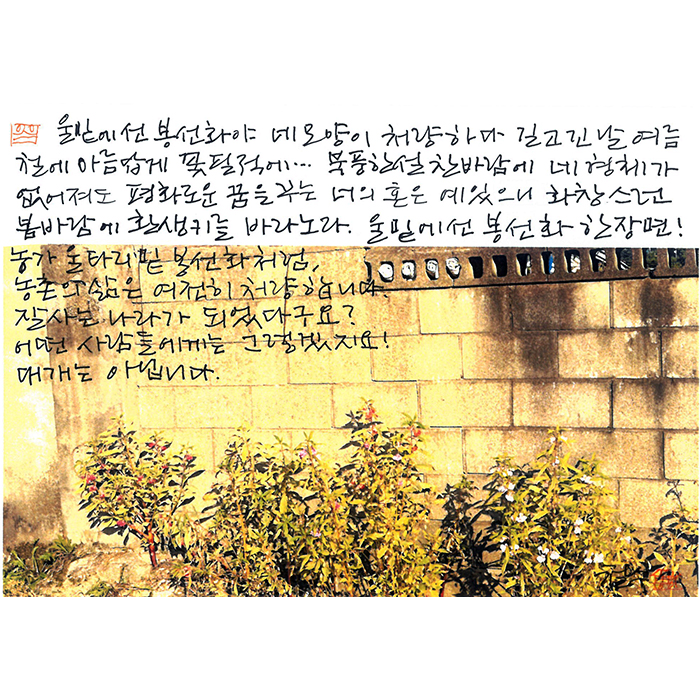 울밑에선 봉선화야 네모양이 처량하다 길고긴 날 여름
철에 아름답게 꽃필적에... 북풍한설 찬바람에 네형체가
없어져도 평화로운 꿈을 꾸는 너의 혼은 예있으니 화창스런
봄바람에 환생키를 바라노라. 울밑에선 봉선화 한장면!
농가 울타리밑 봉선화처럼,
농촌의 삶은 여전히 처량합니다.
잘사는 나라가 되었다구요?
어떤 사람들에게는 그렇겠지요!
대개는 아닙니다.